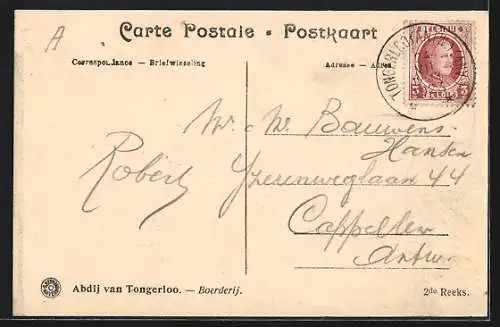 A
Carte Postale • Postkaart
Correspondance — Briefwisseling
Adresse — Adres
Mr. Mr. Bauwens
Hansen
Robert
Yzerenweglaan 44
Cappellen
Antw.
Abdij van Tongerloo. — Boerderij.
2de Reeks.